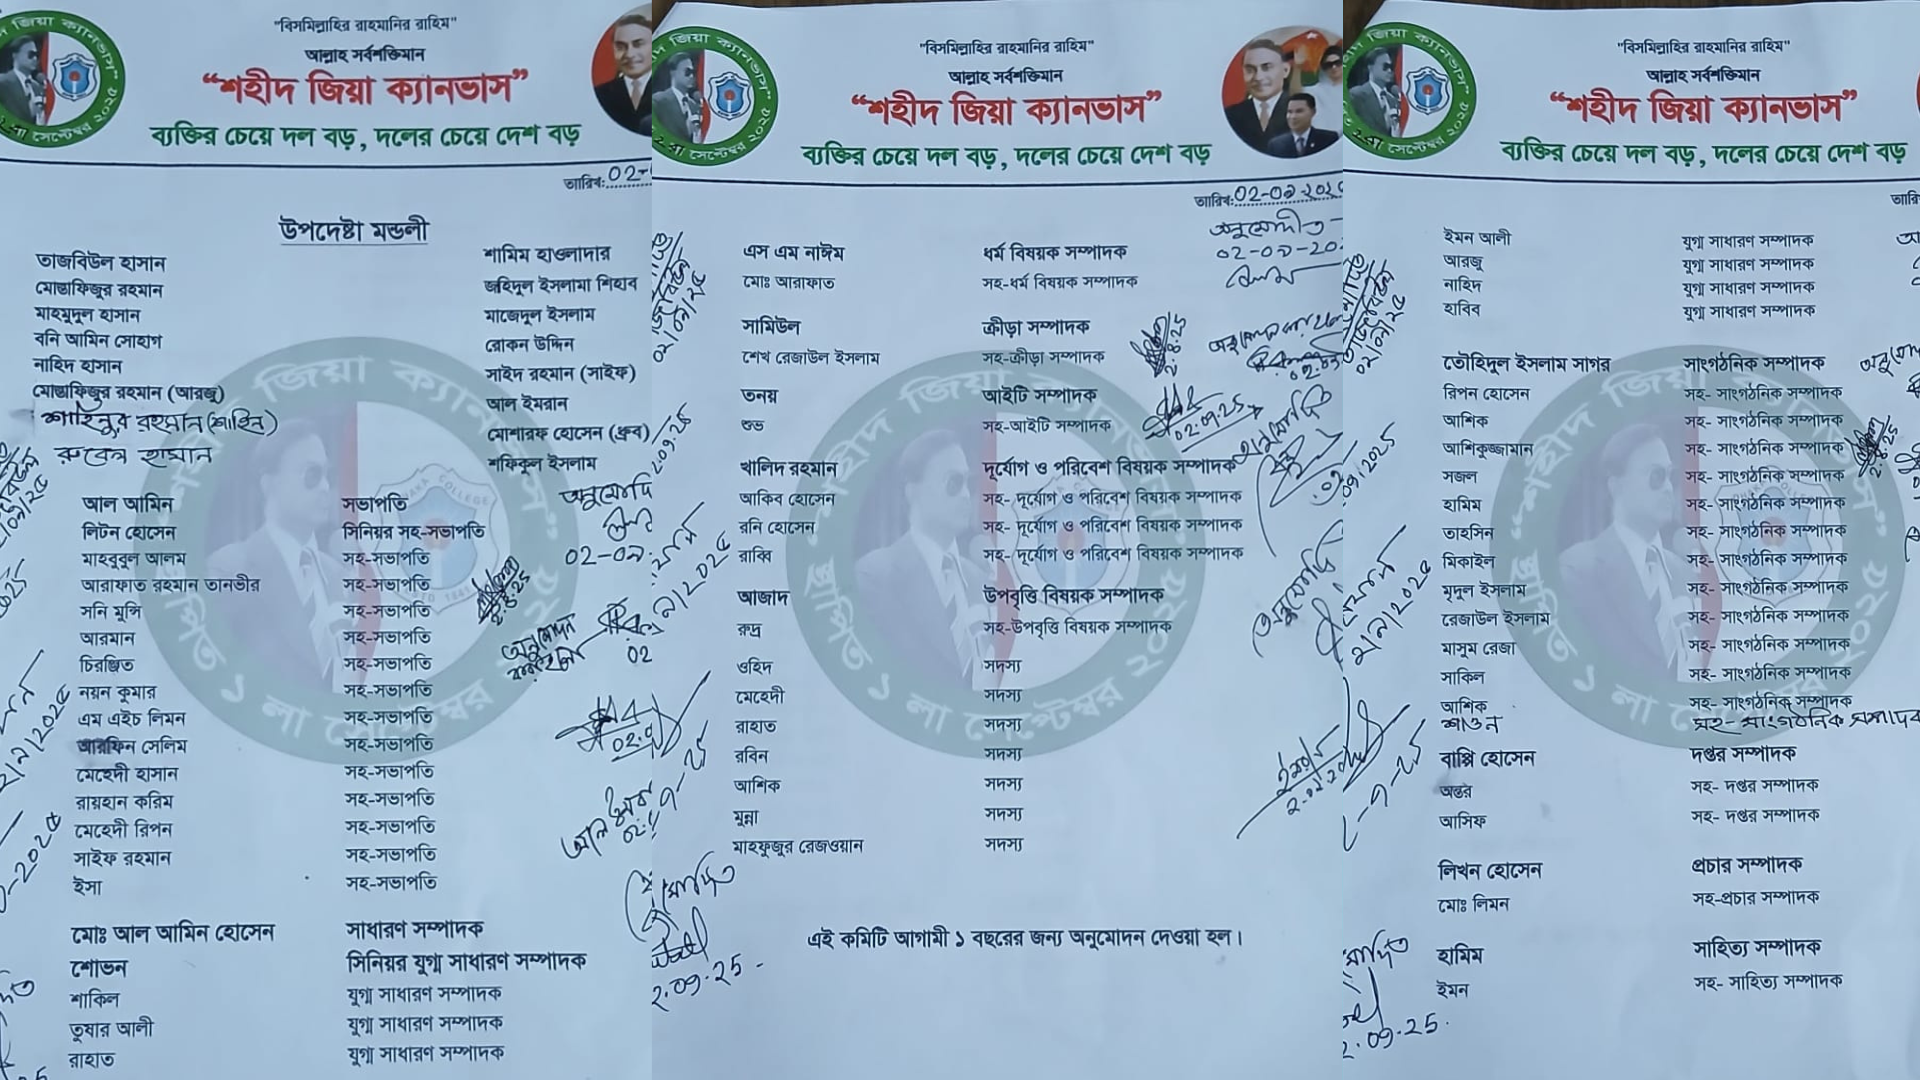 "বিসমিল্লাহির রাহমানির রাহিম"
আল্লাহ সর্বশক্তিমান
“শহীদ জিয়া ক্যানভাস”
ব্যক্তির চেয়ে দল বড়, দলের চেয়ে দেশ বড়
তারিখ: 02-
উপদেষ্টা মন্ডলী
তাজবিউল হাসান শামিম হাওলাদার
মোস্তাফিজুর রহমান জহিদুল ইসলামা শিহাব
মাহমুদুল হাসান মাজেদুল ইসলাম
বনি আমিন সোহাগ রোকন উদ্দিন
নাহিদ হাসান সাইদ রহমান (সাইফ)
মোস্তাফিজুর রহমান (আরজু) আল ইমরান
শাহিনুর রহমান (শাহিন) মোশারফ হোসেন (ধ্রুব)
রুবেল হাসান শফিকুল ইসলাম
আল আমিন সভাপতি
লিটন হোসেন সিনিয়র সহ-সভাপতি
মাহবুবুল আলম সহ-সভাপতি
আরাফাত রহমান তানভীর সহ-সভাপতি
সনি মুন্সি সহ-সভাপতি
আরমান সহ-সভাপতি
চিরঞ্জিত সহ-সভাপতি
নয়ন কুমার সহ-সভাপতি
এম এইচ লিমন সহ-সভাপতি
আরফিন সেলিম সহ-সভাপতি
মেহেদী হাসান সহ-সভাপতি
রায়হান করিম সহ-সভাপতি
মেহেদী রিপন সহ-সভাপতি
সাইফ রহমান সহ-সভাপতি
ইসা সহ-সভাপতি
মোঃ আল আমিন হোসেন সাধারণ সম্পাদক
শোভন সিনিয়র যুগ্ম সাধারণ সম্পাদক
শাকিল যুগ্ম সাধারণ সম্পাদক
তুষার আলী যুগ্ম সাধারণ সম্পাদক
রাহাত যুগ্ম সাধারণ সম্পাদক
"বিসমিল্লাহির রাহমানির রাহিম"
আল্লাহ সর্বশক্তিমান
“শহীদ জিয়া ক্যানভাস”
ব্যক্তির চেয়ে দল বড়, দলের চেয়ে দেশ বড়
তারিখ: 02-০৯-২০২৫
এস এম নাঈম ধর্ম বিষয়ক সম্পাদক
মোঃ আরাফাত সহ-ধর্ম বিষয়ক সম্পাদক
সামিউল ক্রীড়া সম্পাদক
শেখ রেজাউল ইসলাম সহ-ক্রীড়া সম্পাদক
তনয় আইটি সম্পাদক
শুভ সহ-আইটি সম্পাদক
খালিদ রহমান দূর্যোগ ও পরিবেশ বিষয়ক সম্পাদক
আকিব হোসেন সহ- দূর্যোগ ও পরিবেশ বিষয়ক সম্পাদক
রনি হোসেন সহ- দূর্যোগ ও পরিবেশ বিষয়ক সম্পাদক
রাব্বি সহ- দূর্যোগ ও পরিবেশ বিষয়ক সম্পাদক
আজাদ উপবৃত্তি বিষয়ক সম্পাদক
রুদ্র সহ-উপবৃত্তি বিষয়ক সম্পাদক
ওহিদ সদস্য
মেহেদী সদস্য
রাহাত সদস্য
রবিন সদস্য
আশিক সদস্য
মুন্না সদস্য
মাহফুজুর রেজওয়ান সদস্য
এই কমিটি আগামী ১ বছরের জন্য অনুমোদন দেওয়া হল।
"বিসমিল্লাহির রাহমানির রাহিম"
আল্লাহ সর্বশক্তিমান
“শহীদ জিয়া ক্যানভাস”
ব্যক্তির চেয়ে দল বড়, দলের চেয়ে দেশ বড়
ইমন আলী যুগ্ম সাধারণ সম্পাদক
আরজু যুগ্ম সাধারণ সম্পাদক
নাহিদ যুগ্ম সাধারণ সম্পাদক
হাবিব যুগ্ম সাধারণ সম্পাদক
তৌহিদুল ইসলাম সাগর সাংগঠনিক সম্পাদক
রিপন হোসেন সহ- সাংগঠনিক সম্পাদক
আশিক সহ- সাংগঠনিক সম্পাদক
আশিকুজ্জামান সহ- সাংগঠনিক সম্পাদক
সজল সহ- সাংগঠনিক সম্পাদক
হামিম সহ- সাংগঠনিক সম্পাদক
তাহসিন সহ- সাংগঠনিক সম্পাদক
মিকাইল সহ- সাংগঠনিক সম্পাদক
মৃদুল ইসলাম সহ- সাংগঠনিক সম্পাদক
রেজাউল ইসলাম সহ- সাংগঠনিক সম্পাদক
মাসুম রেজা সহ- সাংগঠনিক সম্পাদক
সাকিল সহ- সাংগঠনিক সম্পাদক
আশিক সহ- সাংগঠনিক সম্পাদক
শাওন সহ- সাংগঠনিক সম্পাদক
বাপ্পি হোসেন দপ্তর সম্পাদক
অন্তর সহ- দপ্তর সম্পাদক
আসিফ সহ- দপ্তর সম্পাদক
লিখন হোসেন প্রচার সম্পাদক
মোঃ লিমন সহ-প্রচার সম্পাদক
হামিম সাহিত্য সম্পাদক
ইমন সহ- সাহিত্য সম্পাদক